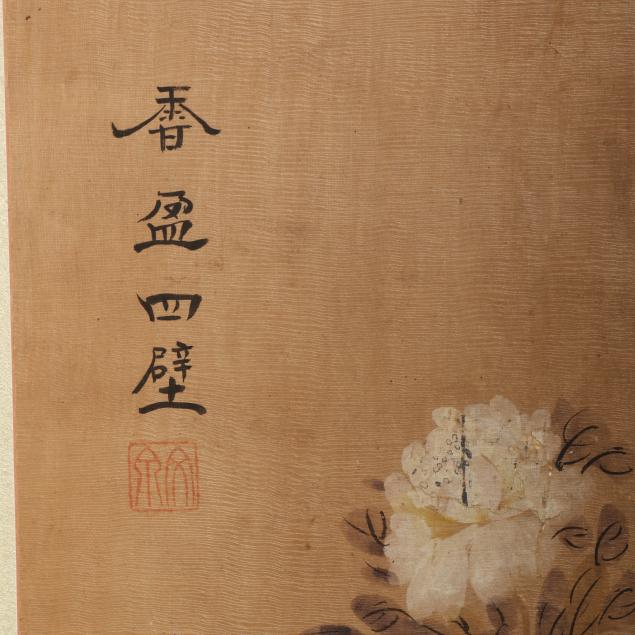 香盈四壁